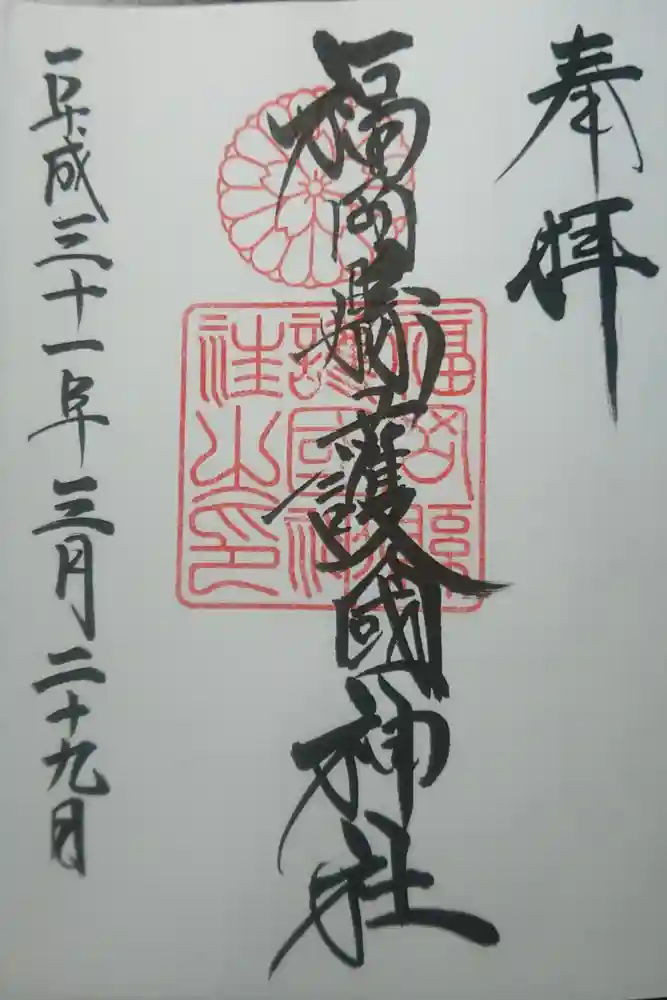 奉拝
福岡縣護國神社
福岡縣
護國神
社之印
平成三十一年三月二十九日